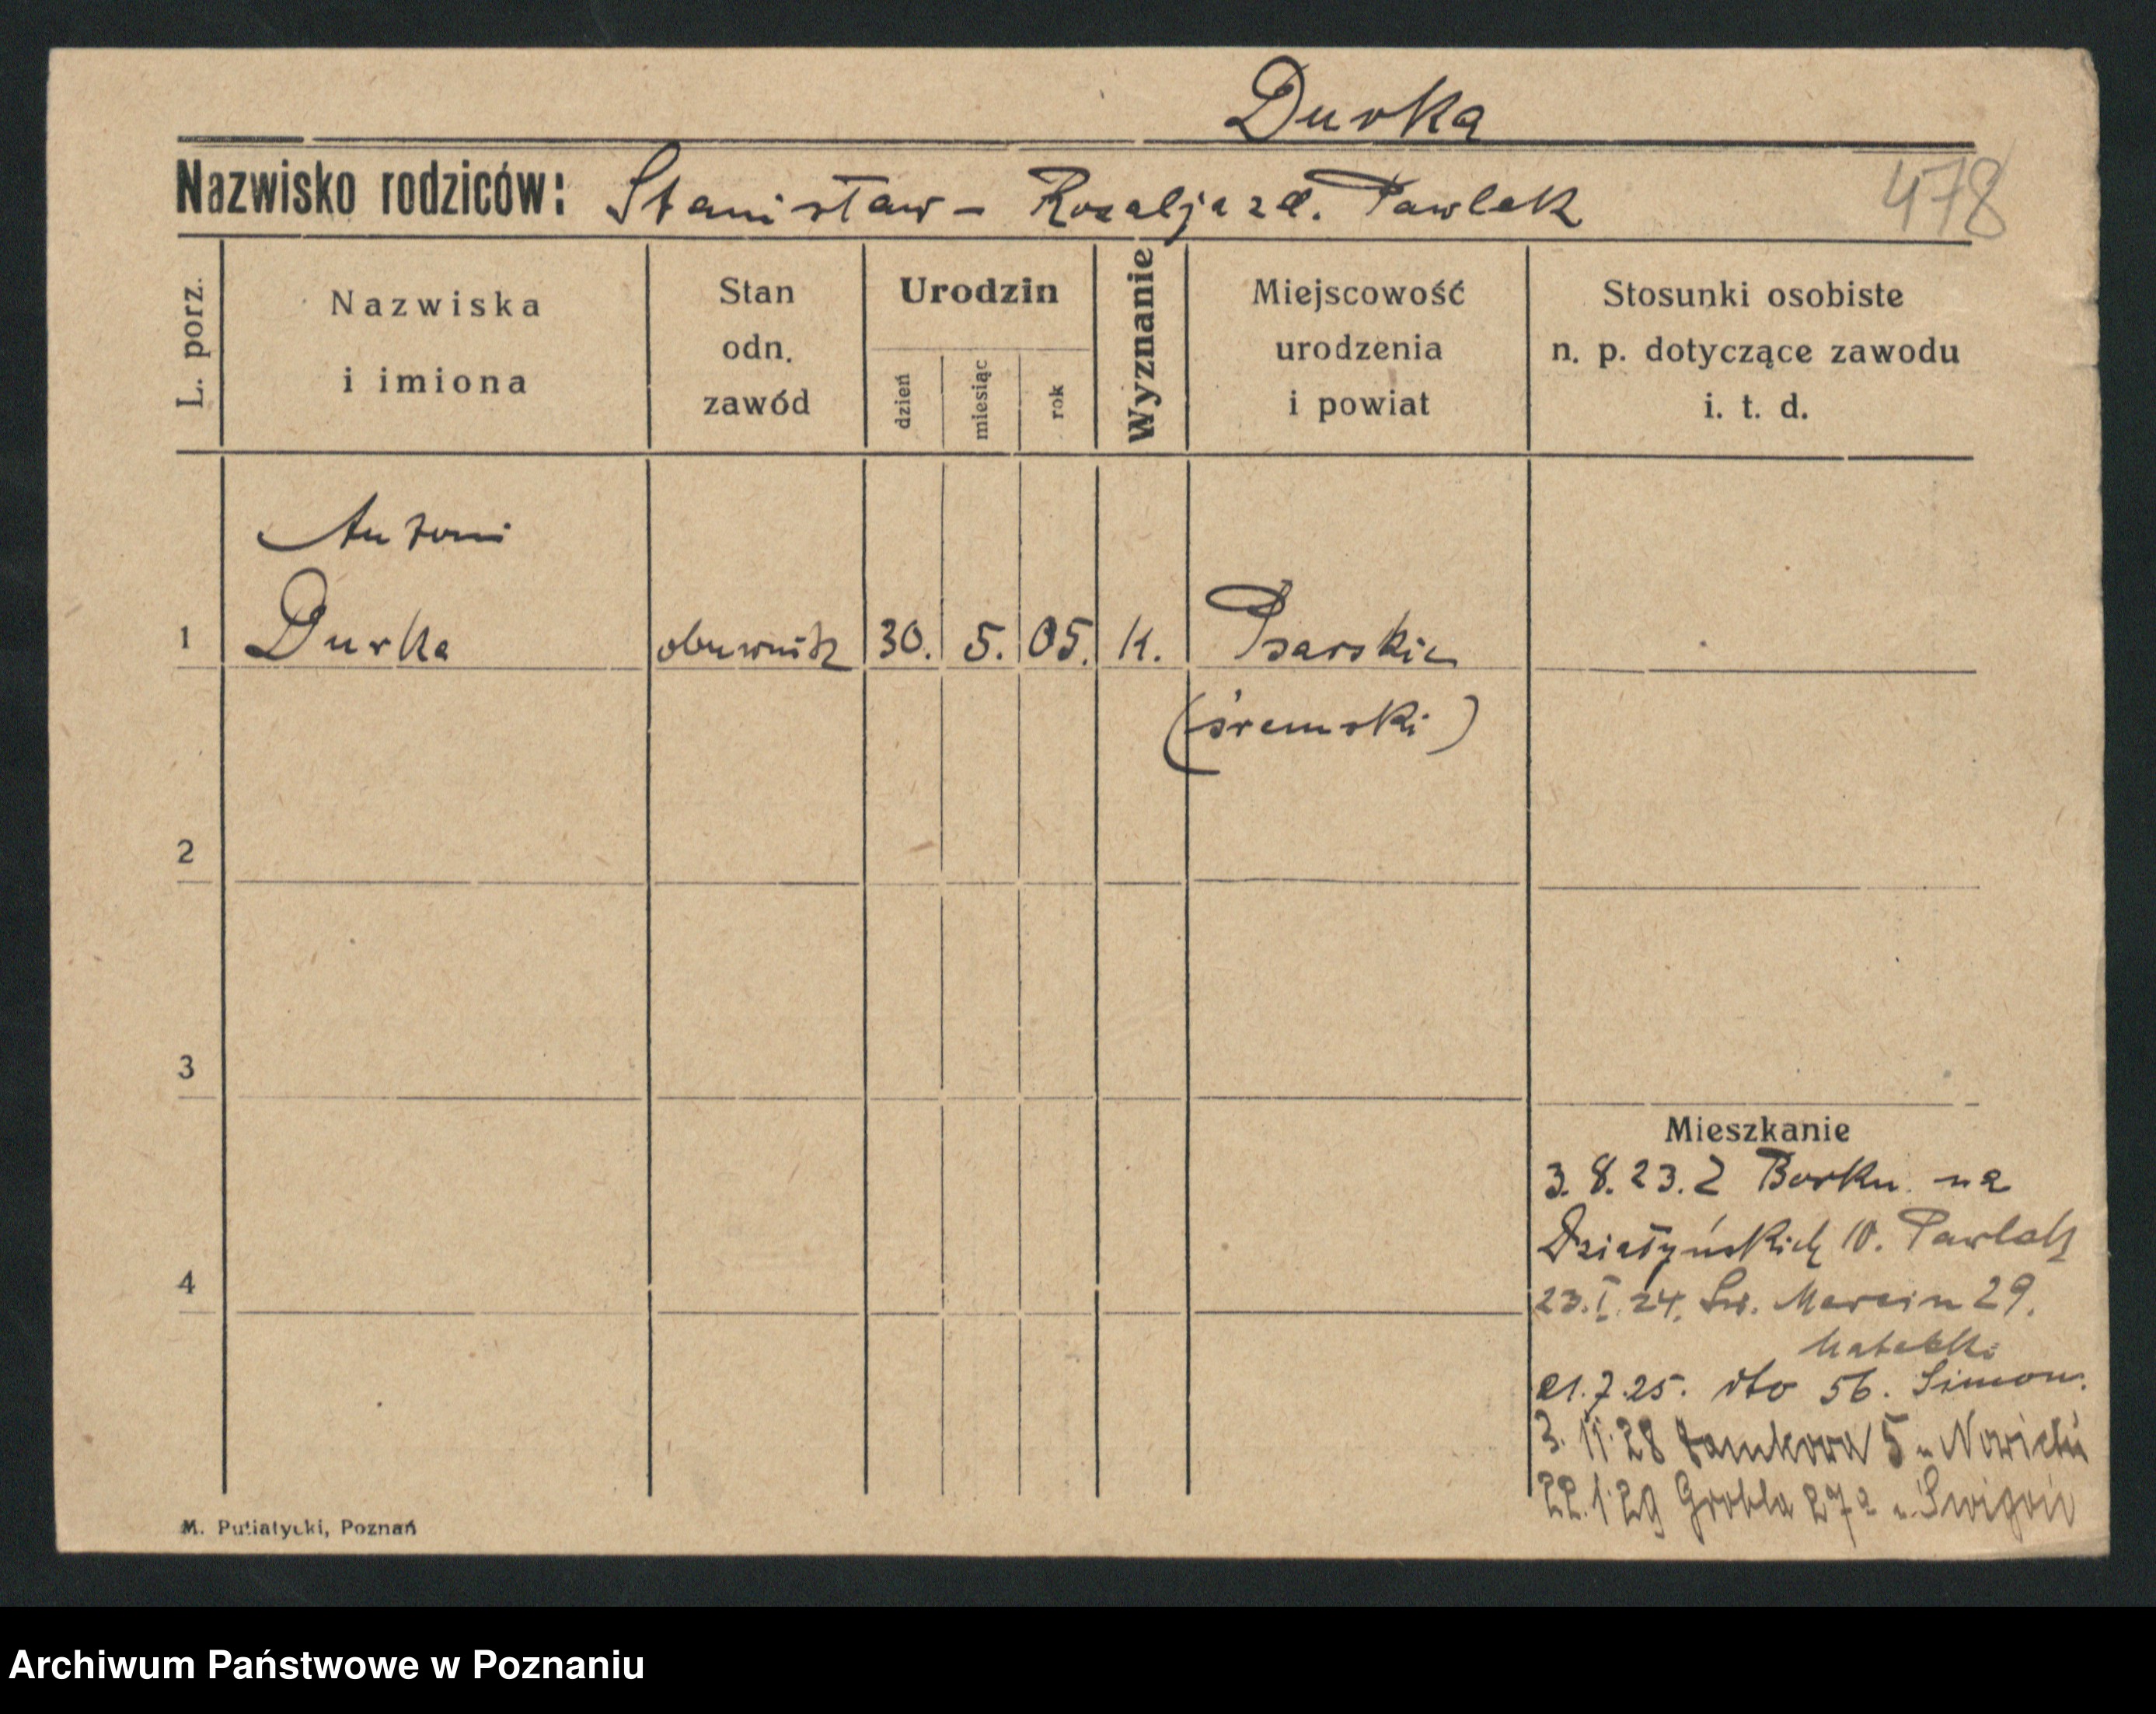 Durka
Nazwisko rodziców: Stanisław - Rozalja zd. Pawlak
478
L. porz.
Nazwiska
i imiona
Stan
odn.
zawód
Urodzin
dzień
miesiąc
rok
Wyznanie
Miejscowość
urodzenia
i powiat
Stosunki osobiste
n. p. dotyczące zawodu
i. t. d.
Antoni
1 Durka obuwnik 30. 5. 05. K. Psarskie
(śremski)
2
3
4
Mieszkanie
3. 8. 23. Z Borku na
Działyńskich 10. Pawlak
23. I. 24. Św. Marcin 29.
21. 7. 25. dto 56. Simon.
3. 11. 28 Zamkowa 5 u Nowicki
22. 1. 29 Grobla 27a u.
M. Putiatycki, Poznań
Archiwum Państwowe w Poznaniu